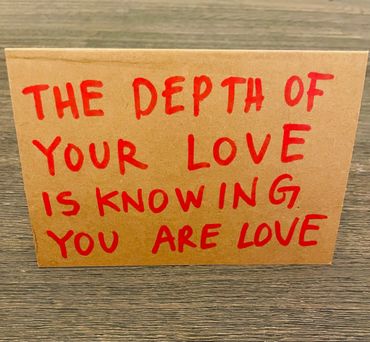 THE DEPTH OF
YOUR LOVE
IS KNOWING
YOU ARE LOVE